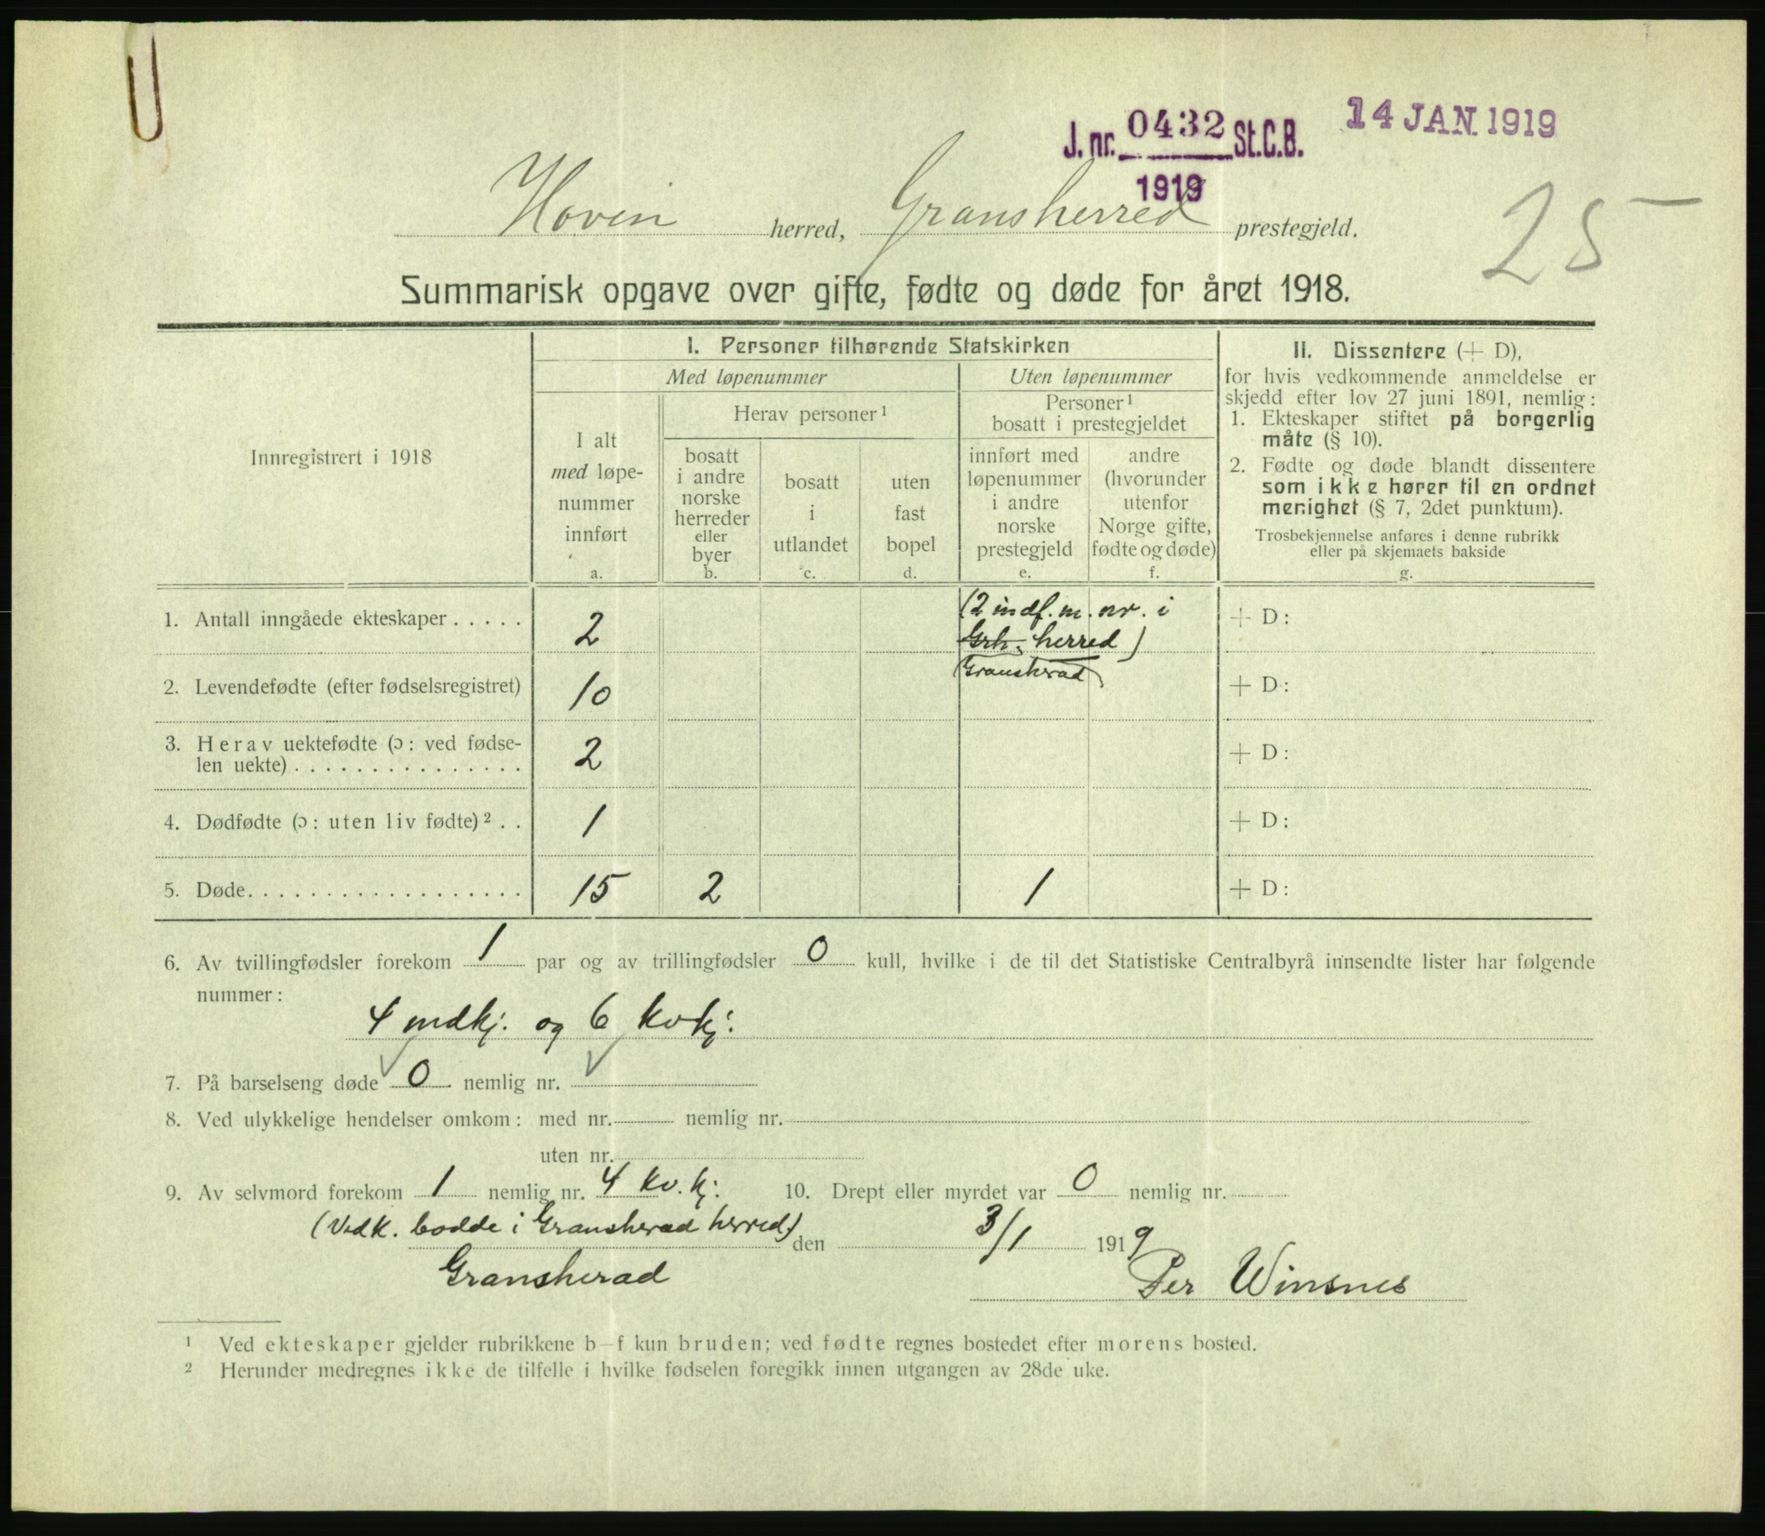 J. nr. 0432 St.C.B.
1919
14 JAN. 1919
25
Hovin herred, Gransherred prestegjeld.
Summarisk opgave over gifte, fødte og døde for året 1918.
Innregistrert i 1918
I. Personer tilhørende Statskirken
Med løpenummer
Uten løpenummer
I alt
med løpe-
nummer
innført
a.
Herav personer¹
bosatt
i andre
norske
herreder
eller
byer
b.
bosatt
i
utlandet
c.
uten
fast
bopel
d.
Personer¹
bosatt i prestegjeldet
innført med
løpenummer
i andre
norske
prestegjeld
e.
andre
(hvorunder
utenfor
Norge gifte,
fødte og døde)
f.
II. Dissentere (+ D),
for hvis vedkommende anmeldelse er
skjedd efter lov 27 juni 1891, nemlig:
1. Ekteskaper stiftet på borgerlig
måte (§ 10).
2. Fødte og døde blandt dissentere
som ikke hører til en ordnet
menighet (§ 7, 2det punktum).
Trosbekjennelse anføres i denne rubrikk
eller på skjemaets bakside
g.
1. Antall inngåede ekteskaper . . . . . 2 (2 indf. m. nr. i + D:
Grh. herred)
Gransherad
2. Levendefødte (efter fødselsregistret) 10 + D:
3. Herav uektefødte (ɔ: ved fødse-
len uekte) . . . . . . . . . . . . . . . 2 + D:
4. Dødfødte (ɔ: uten liv fødte)² . . 1 + D:
5. Døde. . . . . . . . . . . . . . . . . . 15 2 1 + D:
6. Av tvillingfødsler forekom 1 par og av trillingfødsler 0 kull, hvilke i de til det Statistiske Centralbyrå innsendte lister har følgende
nummer:
4 mdkj. og 6 kvkj.
7. På barselseng døde 0 nemlig nr.
8. Ved ulykkelige hendelser omkom: med nr. nemlig nr.
uten nr.
9. Av selvmord forekom 1 nemlig nr. 4 kv. kj. 10. Drept eller myrdet var 0 nemlig nr.
(Vedk. bodde i Gransherad herred) den 3/1 1919
Gransherad Per Winsnes
¹ Ved ekteskaper gjelder rubrikkene b–f kun bruden; ved fødte regnes bostedet efter morens bosted.
² Herunder medregnes ikke de tilfelle i hvilke fødselen foregikk innen utgangen av 28de uke.